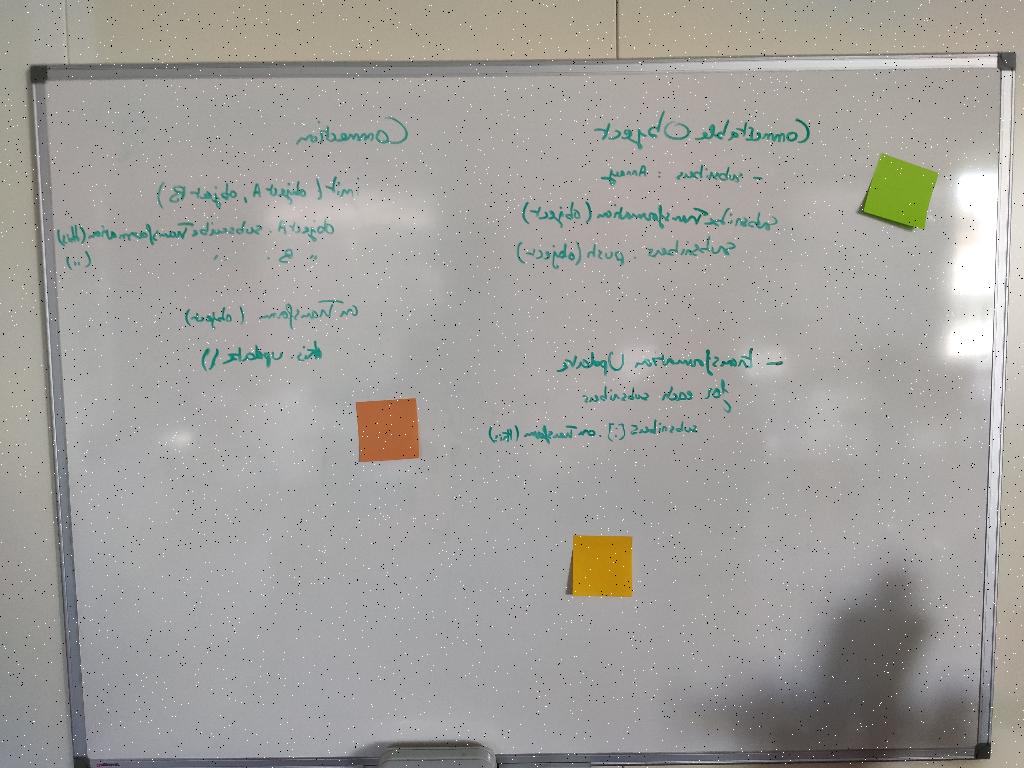 Connectable Object
- subscribers : Array
subscribeTransformation (object)
subscribers . push (object)
- transformation Update
for each subscribers
subscribers [i] . onTransform (this)
Connection
init ( object A , object B )
object A . subscribeTransformation (this)
" B . " (")
onTransform ( object)
this . update ()